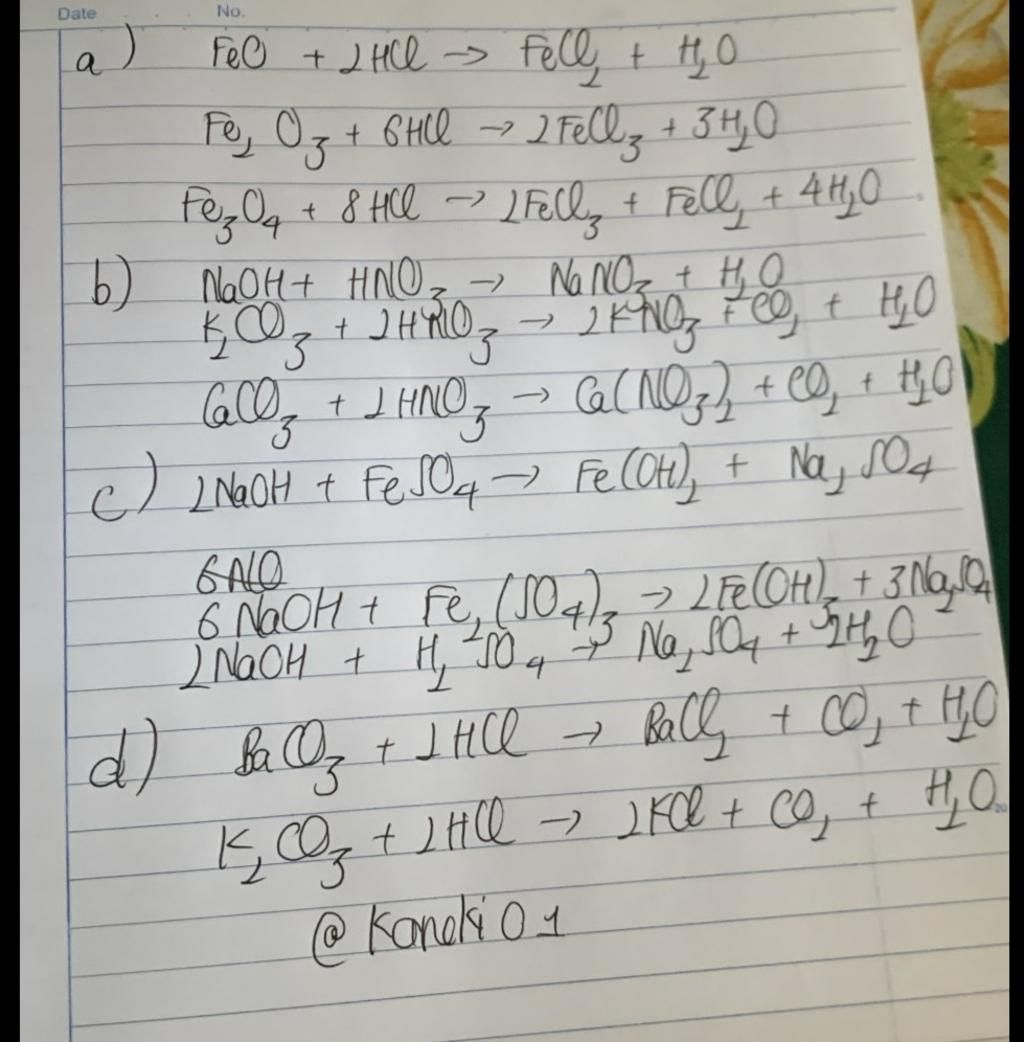 Date No.
a) FeO + 2HCl → FeCl₂ + H₂O
Fe₂O₃ + 6HCl → 2FeCl₃ + 3H₂O
Fe₃O₄ + 8HCl → 2FeCl₃ + FeCl₂ + 4H₂O
b) NaOH + HNO₃ → NaNO₃ + H₂O
K₂CO₃ + 2HNO₃ → 2KNO₃ + CO₂ + H₂O
CaCO₃ + 2HNO₃ → Ca(NO₃)₂ + CO₂ + H₂O
c) 2NaOH + FeSO₄ → Fe(OH)₂ + Na₂SO₄
6NaOH + Fe₂(SO₄)₃ → 2Fe(OH)₃ + 3Na₂SO₄
2NaOH + H₂SO₄ → Na₂SO₄ + 2H₂O
d) BaCO₃ + 2HCl → BaCl₂ + CO₂ + H₂O
K₂CO₃ + 2HCl → 2KCl + CO₂ + H₂O
@Kaneki01